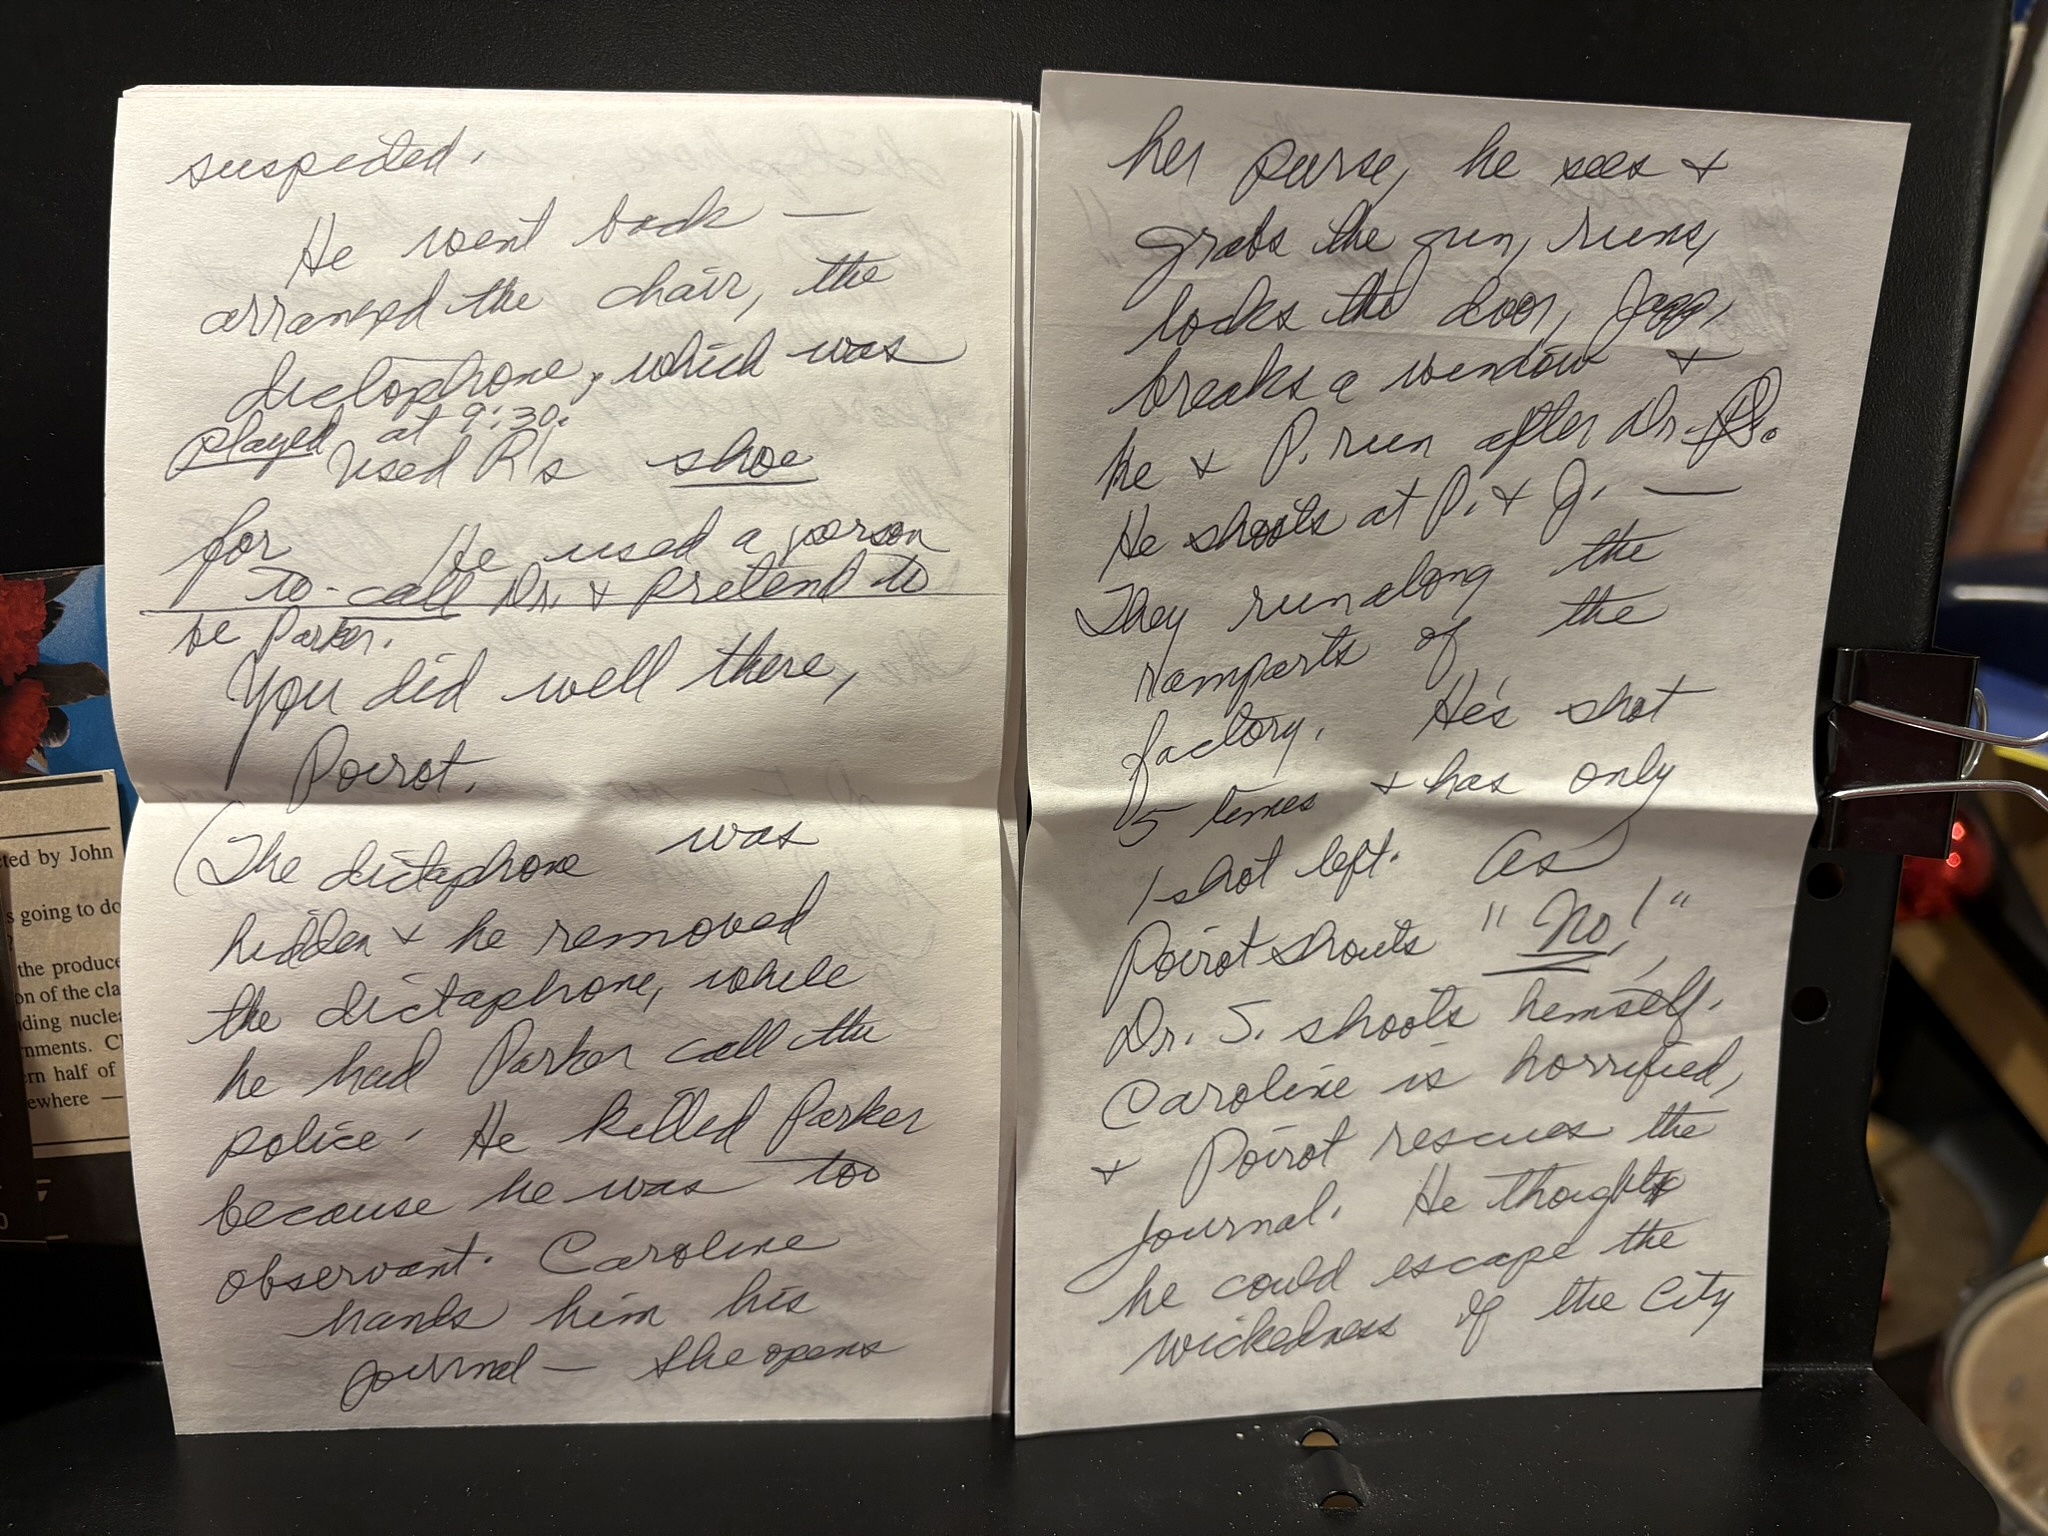 suspected.
He went back —
arranged the chair, the
dictophone, which was
played at 9:30.
Used R's shoe
for He used a person
to call Dr. & pretend to
be Parker.
You did well there,
Poirot.
(The dictaphone was
hidden & he removed
the dictaphone, while
he had Parker call the
police. He killed Parker
because he was too
observant. Caroline
hands him his
journal — she opens
her purse, he sees &
grabs the gun, runs,
locks the door, Japp,
breaks a window &
he & P. run after Dr. S.
He shoots at P. & J. —
They run along the
ramparts of the
factory. He's shot
5 times & has only
1 shot left. As
Poirot shouts "No!"
Dr. S. shoots himself.
Caroline is horrified,
& Poirot rescues the
journal. He thought
he could escape the
wickedness of the City
ted by John
s going to do
the produce
on of the cla
ding nuclea
nments. C
rn half of
ewhere —